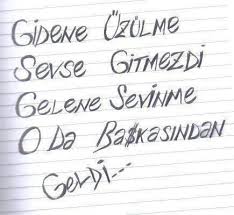 GİDENE ÜZÜLME
SEVSE GİTMEZDİ
GELENE SEVİNME
O DA BAŞKASINDAN
GELDİ...